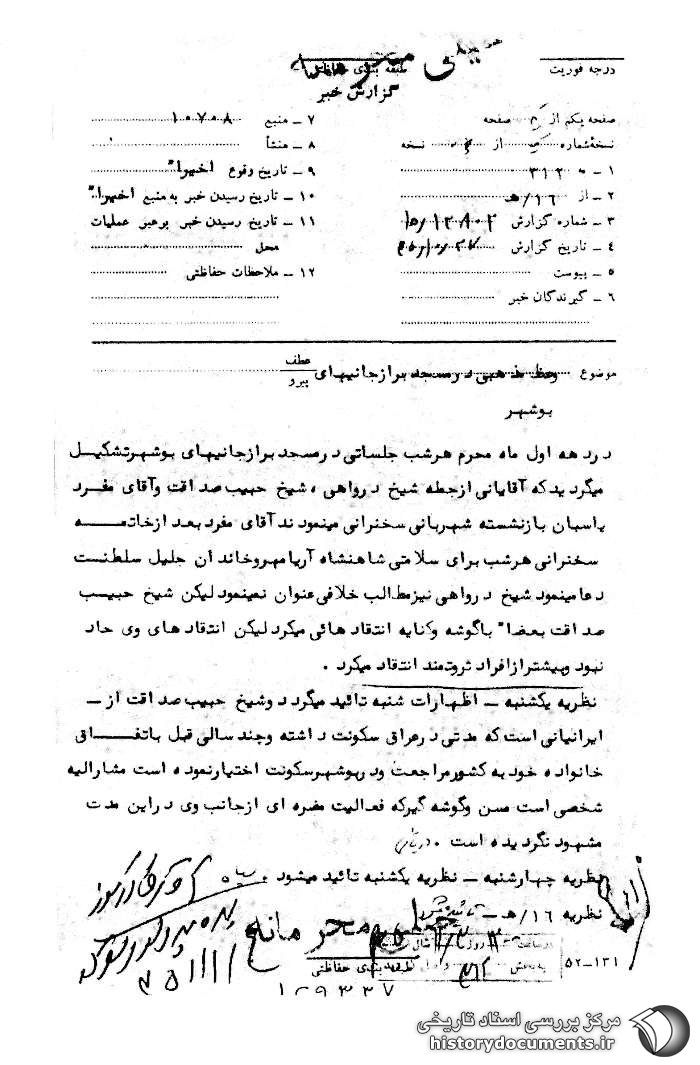 خیلی محرمانه
درجه فوریت
طبقه بندی حفاظتی
گزارش خبر
صفحه یکم از صفحه
نسخه شماره از نسخه
۱ – به ۳۱۲
۲ – از ۱۶/هـ
۳ – شماره گزارش
۴ – تاریخ گزارش
۵ – پیوست
۶ – گیرندگان خبر
۷ – منبع ۱۰۷۰۸
۸ – منشأ
۹ – تاریخ وقوع اخیرا"
۱۰ – تاریخ رسیدن خبر به منبع اخیرا"
۱۱ – تاریخ رسیدن خبر برهبر عملیات
محل
۱۲ – ملاحظات حفاظتی
موضوع وعظ مذهبی در مسجد برازجانیهای
بوشهر
عطف
پیرو
در دهه اول ماه محرم هرشب جلساتی در مسجد برازجانیهای بوشهر تشکیل
میگردید که آقایانی ازجمله شیخ درواهی ، شیخ حبیب صداقت وآقای مفرد
پاسبان بازنشسته شهربانی سخنرانی مینمودند آقای مفرد بعد ازخاتمه
سخنرانی هرشب برای سلامتی شاهنشاه آریامهر وخاندان جلیل سلطنت
دعا مینمود شیخ درواهی نیز مطالب خلافی عنوان نمینمود لیکن شیخ حبیب
صداقت بعضا" باگوشه وکنایه انتقاد هائی میکرد لیکن انتقاد های وی حاد
نبود وبیشتر ازافراد ثروتمند انتقاد میکرد .
نظریه یکشنبه – اظهارات شنبه تائید میگردد وشیخ حبیب صداقت از –
ایرانیانی است که مدتی درعراق سکونت داشته وچند سالی قبل باتفاق
خانواده خود به کشور مراجعت ودربوشهر سکونت اختیار نموده است مشارالیه
شخصی است مسن وگوشه گیرکه فعالیت مضره ای ازجانب وی دراین مدت
مشهود نگردیده است .
نظریه چهارشنبه – نظریه یکشنبه تائید میشود .
نظریه ۱۶/هـ –
خیلی محرمانه
در ساعت روز
به بخش واصل
طبقه بندی حفاظتی
۵۲–۱۳۱
۱۰۹۳۳۷
مرکز بررسی اسناد تاریخی
historydocuments.ir